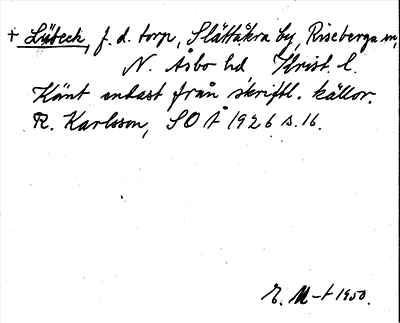 + Lübeck, f. d. torp, Slättåkra by, Riseberga sn,
N. Åsbo hd, Krist. l.
Känt endast från skriftl. källor.
R. Karlsson, SOÅ 1926 s. 16.
E. M-t 1950.